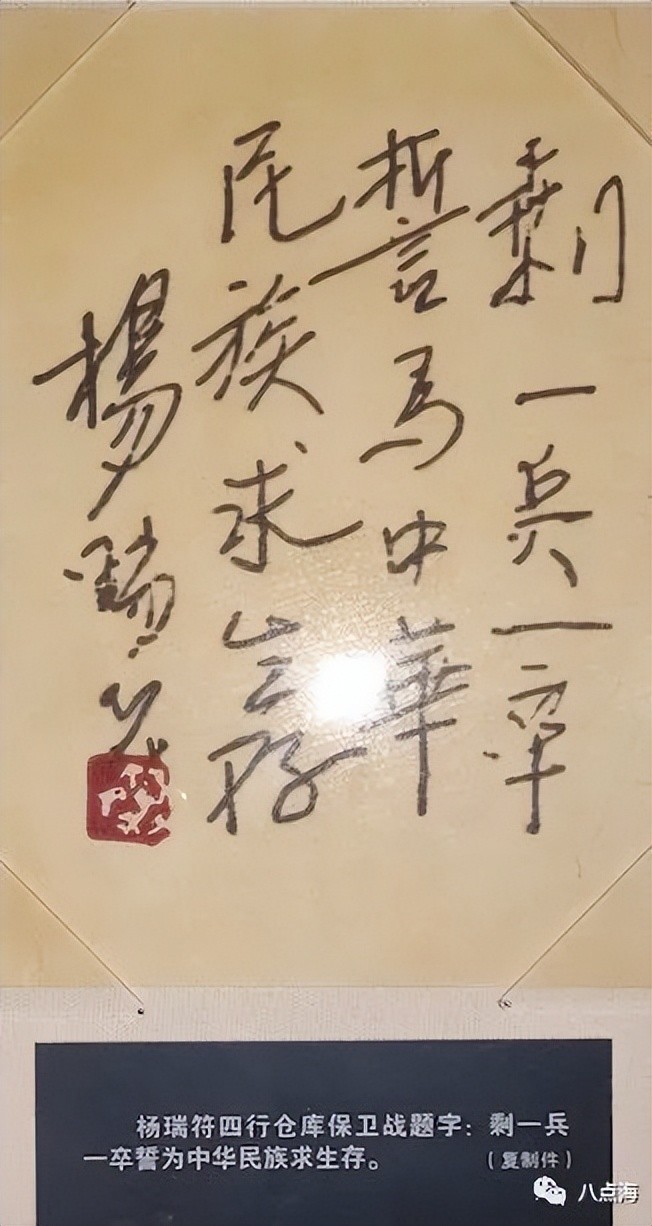 剩一兵一卒
誓為中華
民族求生存
楊瑞符
杨瑞符四行仓库保卫战题字：剩一兵
一卒誓为中华民族求生存。
（复制件）
八点海